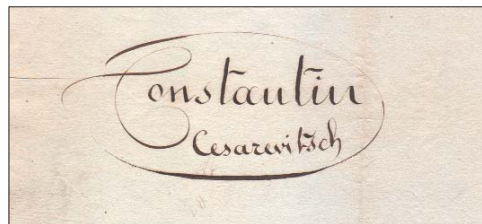 Constantin
Cesarevitsch